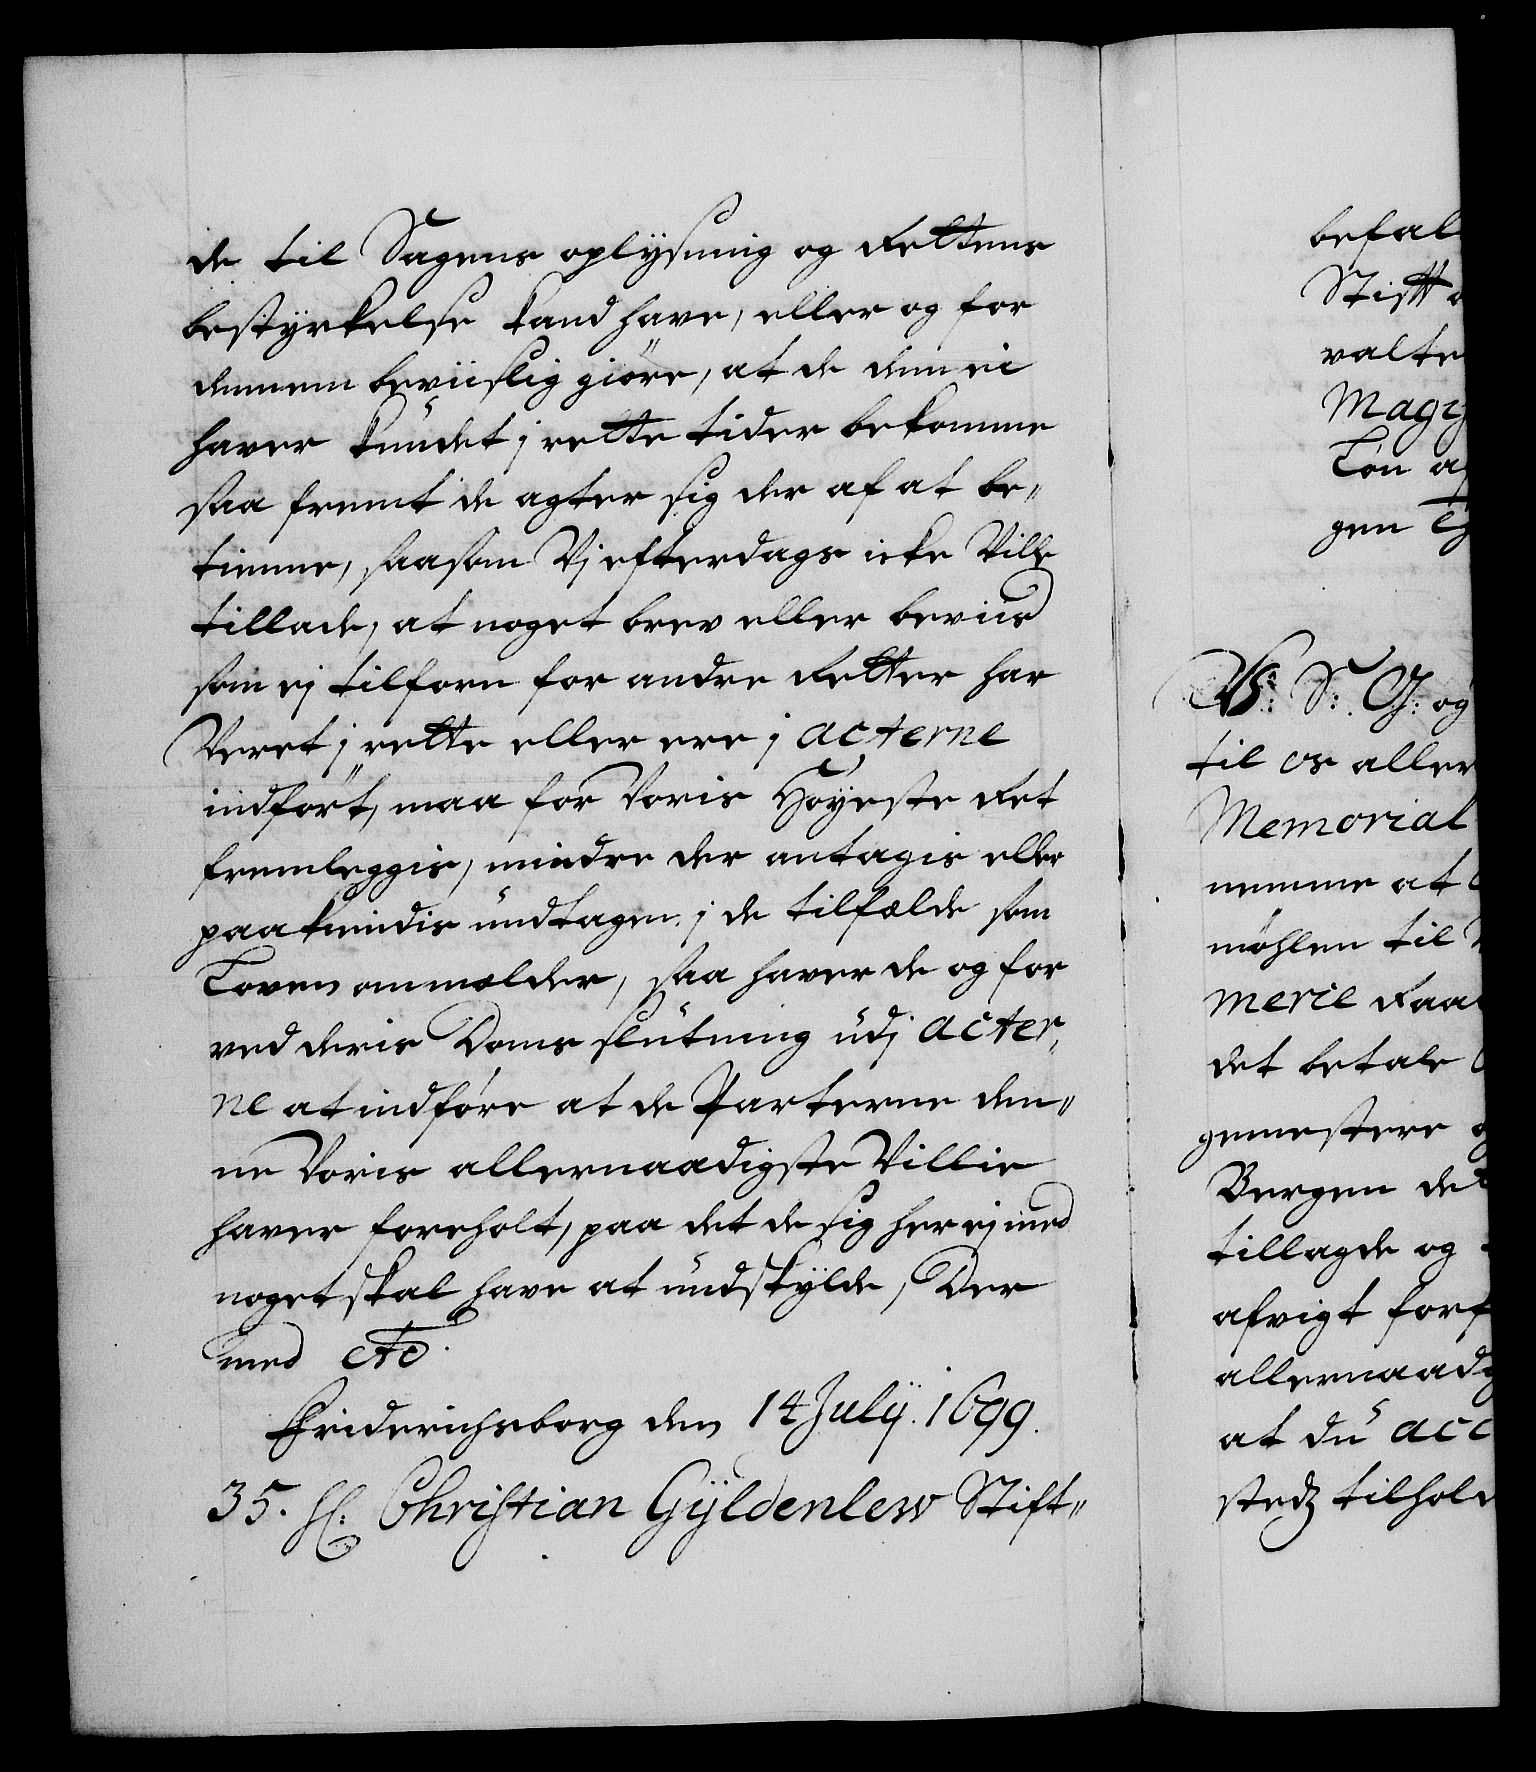 de til Sagens oplysning og Rettens
bestyrkelse kand have, eller og for
dennem beviislig giöre, at de dem ei
haver kundet j rette tider bekomme
saa fremt de agter sig der af at be"
tienne, saasom Vj efterdags icke Ville
tillade, at noget brev eller beviis
som ej tilforn for andre Retter har
Veret j rette eller ere j acterne
indfört, maa for Voris Höyeste Ret
fremleggis, mindre der antagis eller
paakiendis undtagen j de tilfælde som
Loven ommelder, saa haver de og for
ved deris Doms slutning udj acter,
ne at indföre at de Parterne den"
ne Voris allernaadigste Villie
haver foreholt, paa det de sig her ej med
noget skal have at undskylde, Der
med etc.
Friderichsborg den 14 Julij. 1699.
35. H: Christian Gÿldenlew Stift"
befal
Stift
valte
Mag
Lön
gen
V: S: G: og
til os aller
Memorial
nemme at
möhlen til
merie Raa
det betale
gemestere
Bergen det
tillagde og
afvigt forf
allernaad
at du acc
sted tilhold